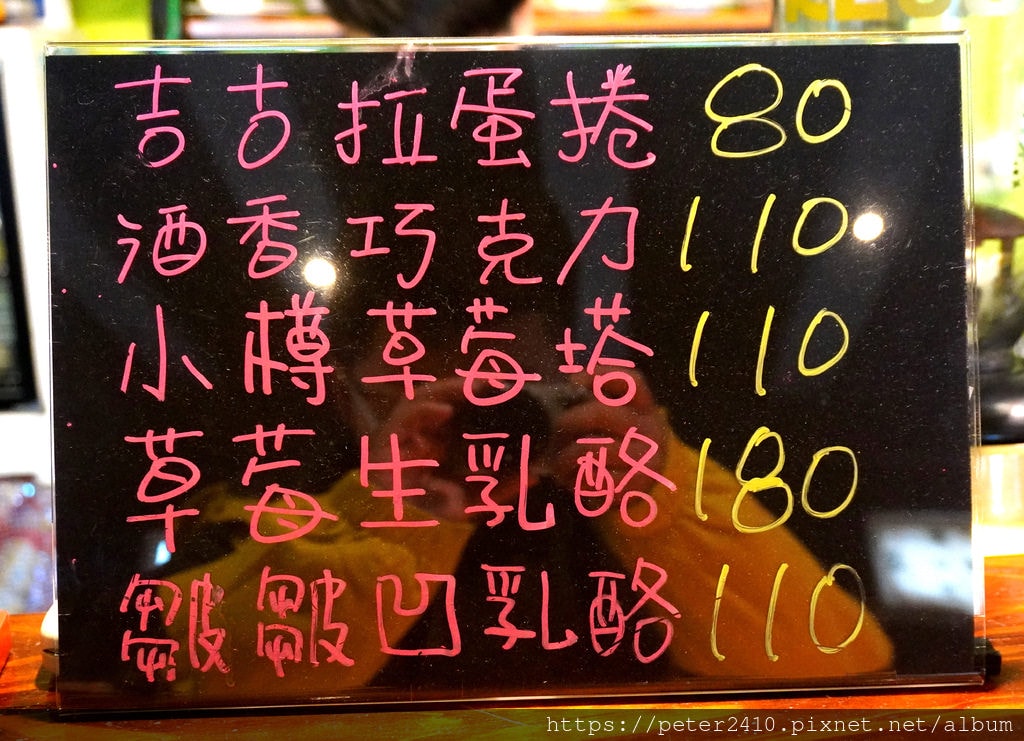 吉吉拉蛋捲 80
酒香巧克力 110
小樽草莓塔 110
草莓生乳酪 180
皺皺凹乳酪 110
https://peter2410.pixnet.net/album